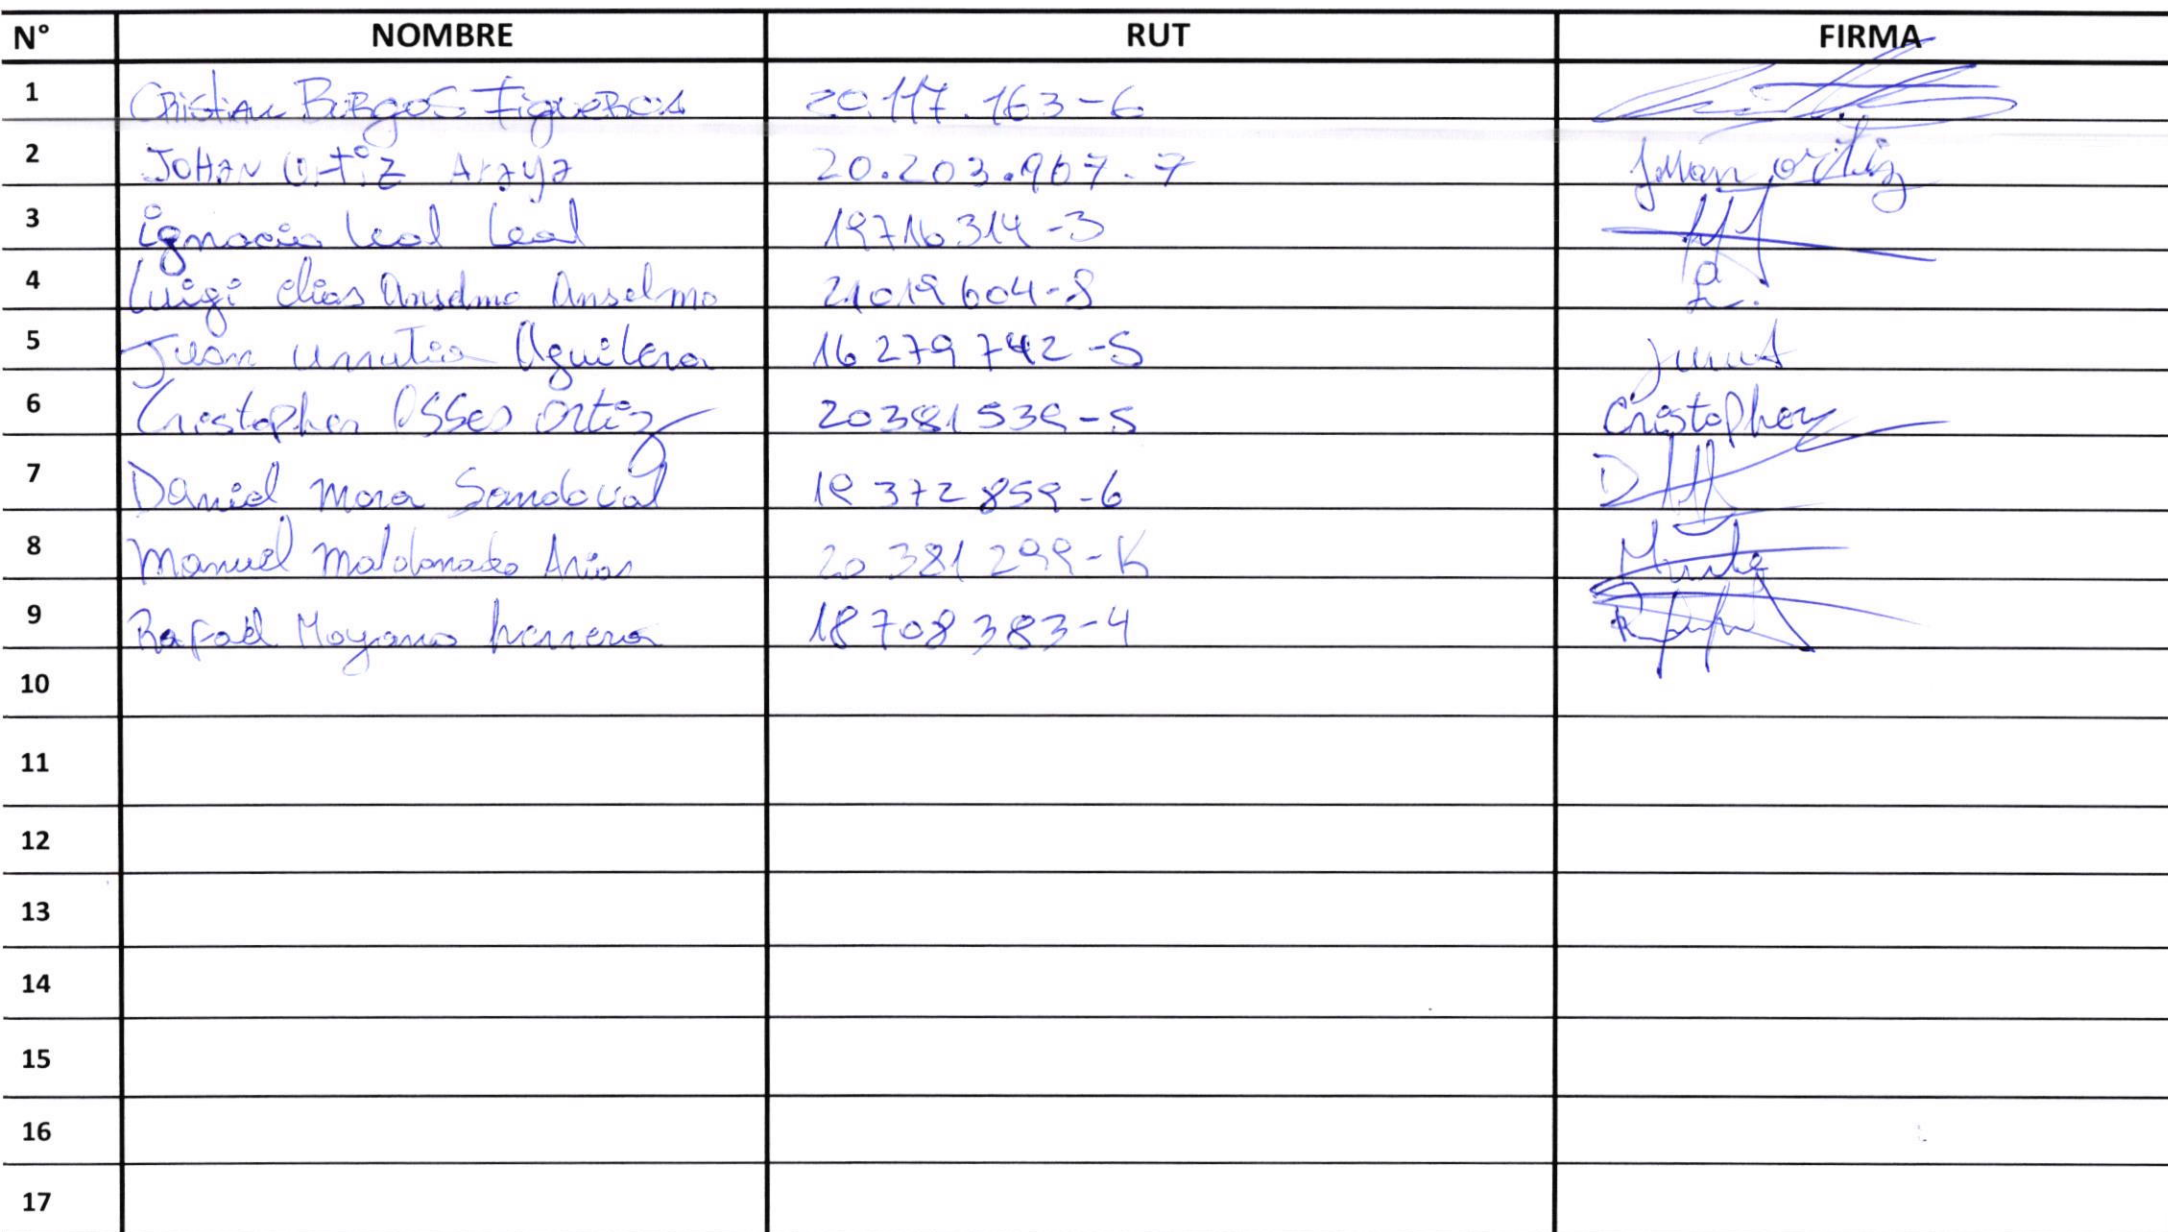 N° NOMBRE RUT FIRMA
1 Cristian Burgos Figueroa 20.117.163-6
2 JoHan Ortiz Araya 20.203.967-7 Johan ortiz
3 ignacio Leal Leal 19716314-3
4 Luigi elias Anselmo Anselmo 21019604-8
5 Juan Urrutia Aguilera 16279742-5
6 Cristopher Osses Ortiz 20381539-5 Cristopher
7 Daniel Mora Sandoval 19372859-6
8 Manuel Maldonado Arias 20381299-K
9 Rafael Moyano herrera 18708383-4
10
11
12
13
14
15
16
17